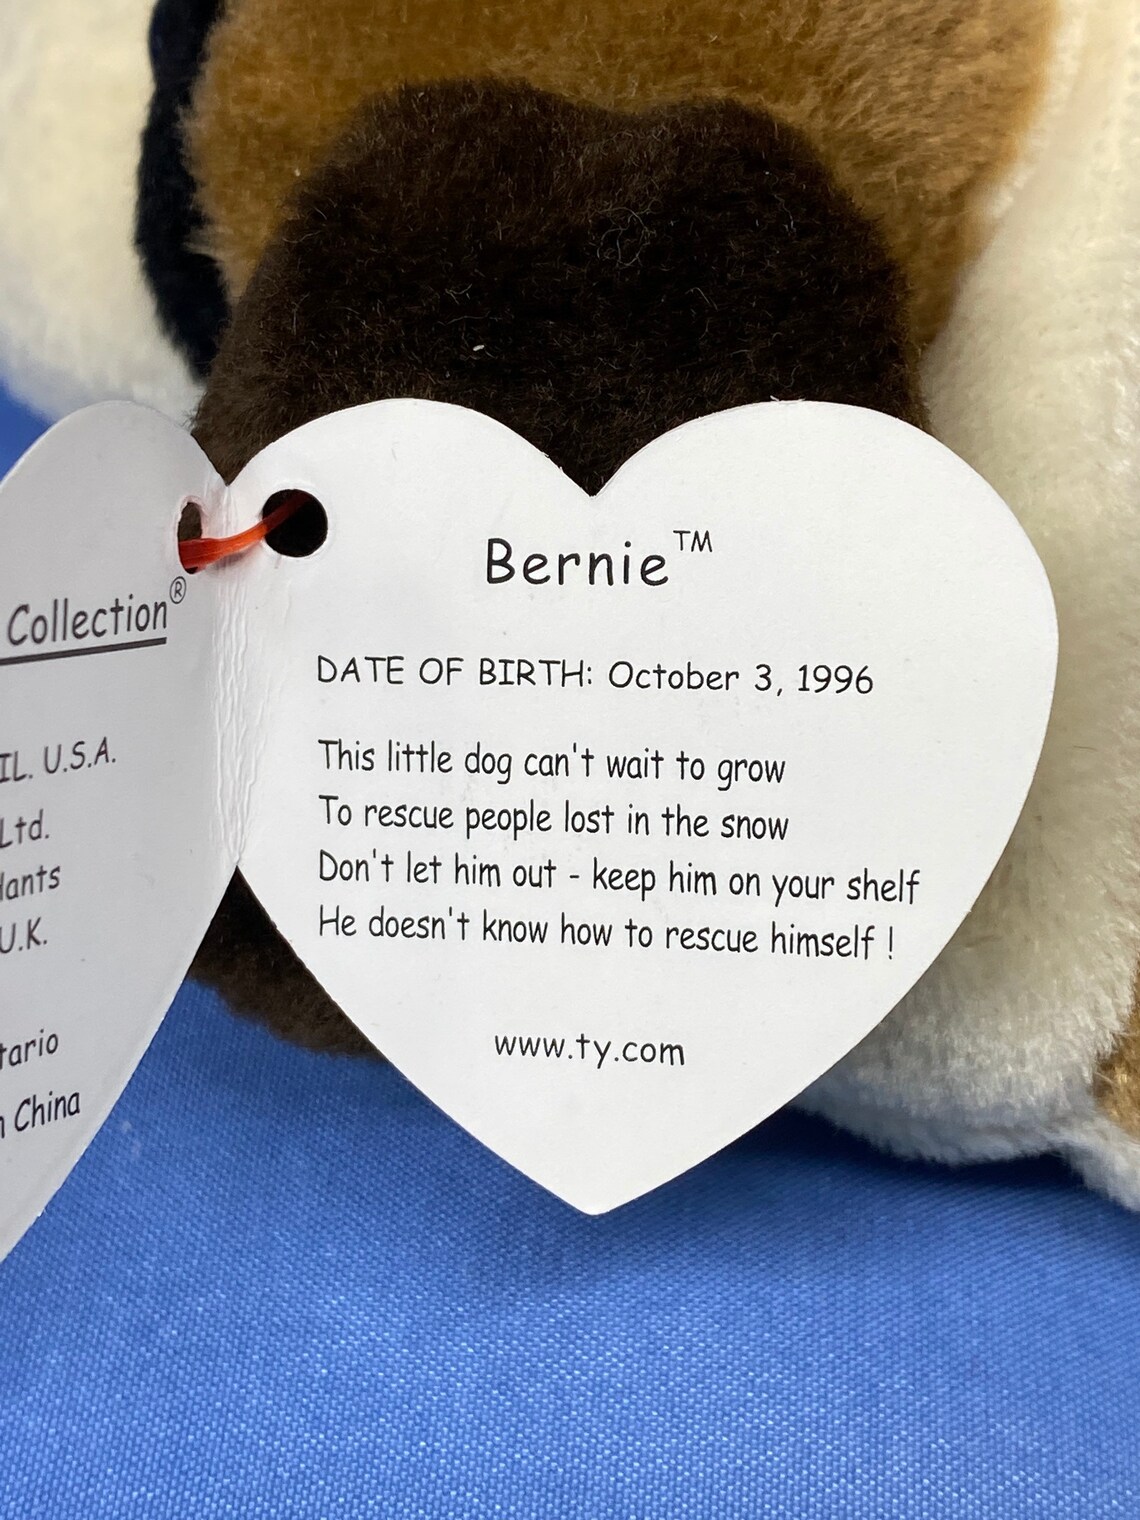 Collection®
IL. U.S.A.
Ltd.
U.K.
China
Bernie™
DATE OF BIRTH: October 3, 1996
This little dog can't wait to grow
To rescue people lost in the snow
Don't let him out - keep him on your shelf
He doesn't know how to rescue himself !
www.ty.com